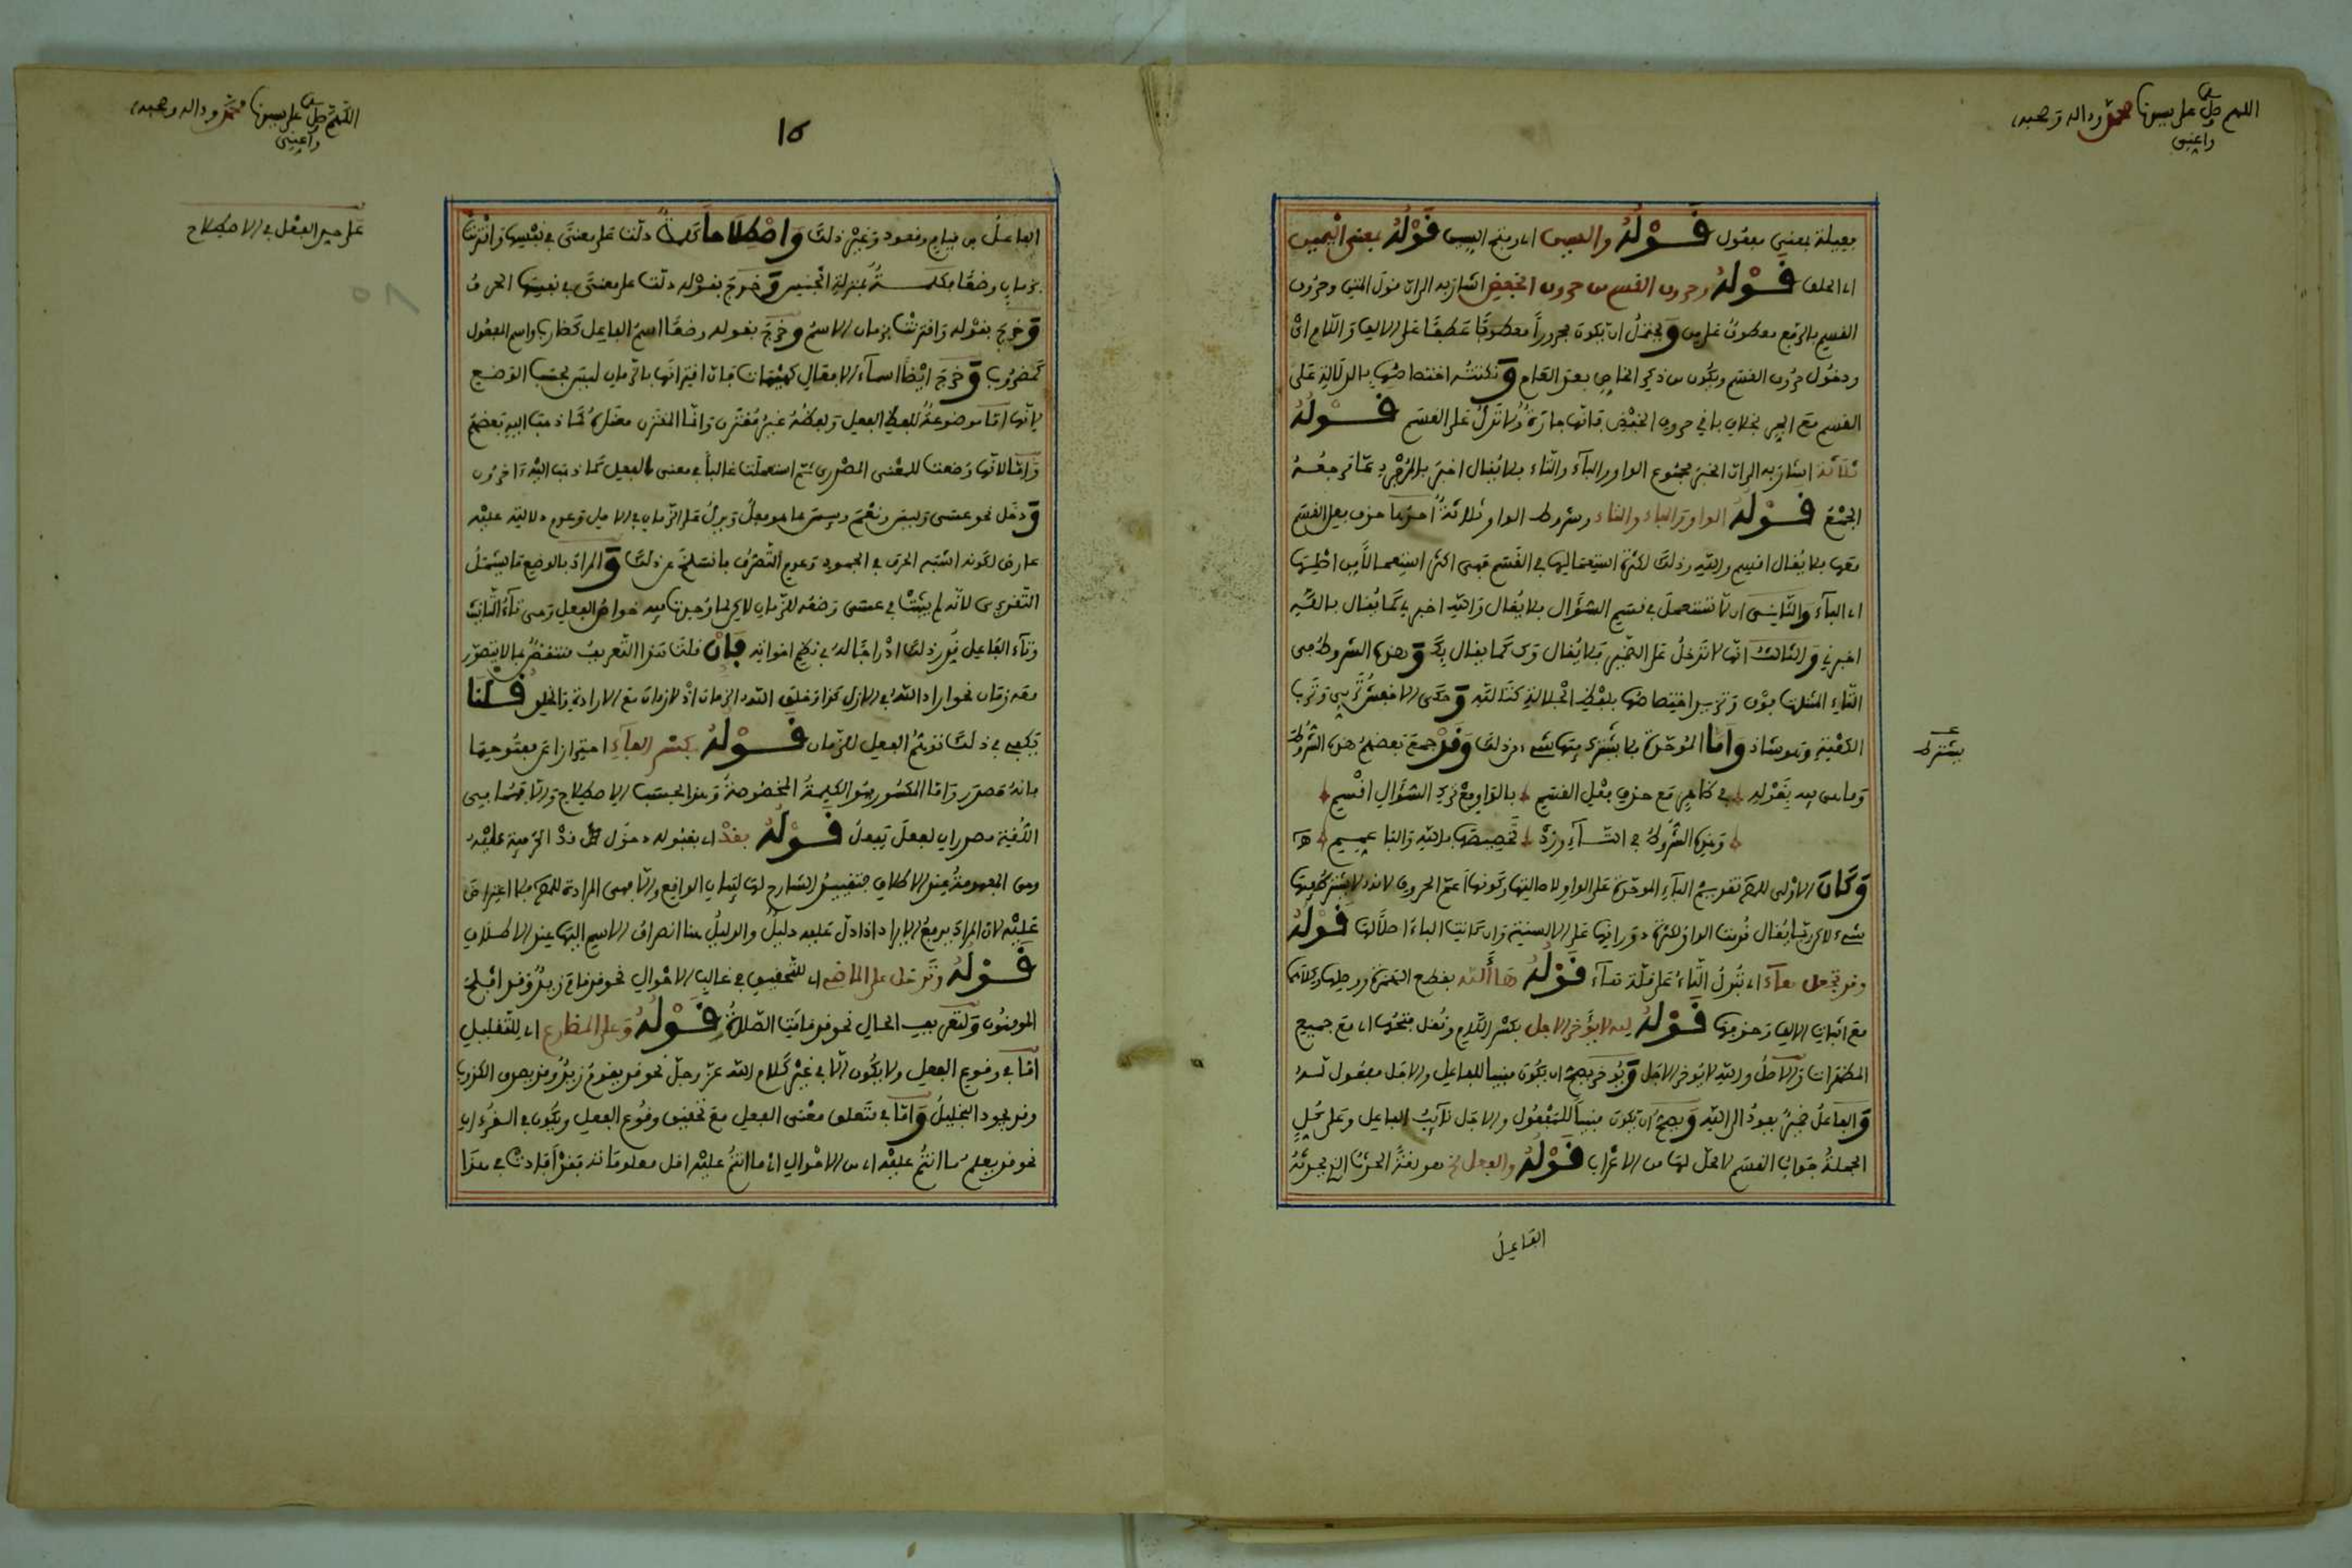 اللهم صل على سيدنا محمد وءاله وصحبه
وأعني
فعيلة بمعنى مفعول قوله والسين أي وبفتح السين قوله بمعنى اليمين
أي الحلف قوله وحروف القسم من حروف الخفض أشار به إلى أن قول المتن وحروف
القسم بالرفع معطوف على من ويحتمل أن يكون مجرورا معطوفا عطفا على الألف واللام أي
ودخول حروف القسم ويكون من ذكر الخاص بعد العام ونكتته اختصاصها بالدلالة على
القسم مع الجر بخلاف باقي حروف الخفض فإنها جارة ولا تدل على القسم قوله
ثلاثة أشار به إلى أن الخبر مجموع الواو والباء والتاء فلا يقال أخبر بالمفرد عما مرجعه
الجمع قوله الواو والباء والتاء وشروط الواو ثلاثة أحدها حذف فعل القسم
معها فلا يقال أقسم والله وذلك لكثرة استعمالها في القسم فهي أكثر استعمالا من أصلها
أي الباء والثاني أن لا تستعمل في قسم السؤال فلا يقال والله أخبرني كما يقال بالله
أخبرني والثالث أنها لا تدخل على الضمير فلا يقال وك كما يقال بك وهذه الشروط هي
التاء المثناة فوق وتزيد اختصاصها بلفظ الجلالة كتالله وحكى الأخفش تربي وترب
الكعبة وهو شاذ وأما الموحدة فلا يشترط فيها شيء من ذلك وقد جمع بعضهم هذه الشروط
يشترط
في ظاهر مع حذف فعل القسم بالواو مع ترك السؤال أقسم
وهذه الشروط في التاء وزد تخصيصها بالله والباء عمم
وكان الأولى للمص تقديم الباء الموحدة على الواو لأصالتها وكونها أعم الحروف لأنه لا يشترط فيها
شيء لاكن ربما يقال قدمت الواو لكثرة دورانها على الألسنة وإن كانت الباء أصلا لها قوله
وقد تجعل هاء أي تبدل التاء على قلة هاء قوله ها ألله بقطع الهمزة ووصلها وكلاهما
مع إثبات الألف وحذفها قوله لله لا يؤخر الأجل بكسر اللام ونقل فتحها أي مع جميع
المظهرات والأصل والله لا يؤخر الأجل ويؤخر يصح أن يكون مبنيا للفاعل والأجل مفعول له
والفاعل ضمير يعود إلى الله ويصح أن يكون مبنيا للمفعول والأجل نائب الفاعل وعلى كل
الجملة جواب القسم لا محل لها من الإعراب قوله والفعل هو لغة الحدث الذي يحدثه
الفاعل
اللهم صل على سيدنا محمد وءاله وصحبه
وأعني
١٥
على حد الفعل في الاصطلاح
الفاعل من قيام وقعود وغير ذلك واصطلاحا كلمة دلت على معنى في نفسها واقترنت
بزمان وضعا فكلمة بمنزلة الجنس وخرج بقوله دلت على معنى في نفسها الحرف
وخرج بقوله واقترنت بزمان الاسم وخرج بقوله وضعا اسم الفاعل كضارب واسم المفعول
كمضروب وخرج أيضا أسماء الأفعال كهيهات فإن اقترانها بالزمان ليس بحسب الوضع
لأنها إما موضوعة للفظ الفعل ولفظه غير مقترن وإنما المقترن معناه كما ذهب إليه بعضهم
وإما لأنها وضعت للمعنى المصدري ثم استعملت غالبا في معنى الفعل كما ذهب إليه ءاخرون
ودخل نحو عسى وليس ونعم وبيس مما هو فعل ويدل على الزمان في الأصل وعدم دلالته عليه
عارض لكونه أشبه الحرف في الجمود وعدم التصرف فانسلخ عن ذلك والمراد بالوضع ما يشمل
التقديري لأنه لم يثبت في عسى وضعه للزمان لاكن لما وجدنا فيه خواص الفعل وهي تاء التأنيث
وتاء الفاعل قدر ذلك إدراجا له في نظم أخواته فإن قلت هذا التعريف منتقض بما لا يتصور
معه زمان نحو أراد الله في الأزل كذا وخلق الله الزمان إذ لا زمان مع الإرادة والخلق قلنا
يكفي في ذلك توهم الفعل للزمان قوله بكسر الفاء احترازا عن مفتوحها
فإنه مصدر وأما المكسور فهو الكلمة المخصوصة وهذا بحسب الاصطلاح وإلا فهما في
اللغة مصدران لفعل يفعل قوله بقد أي بقبوله دخول قد الحرفية عليه
وهي المفهومة عند الإطلاق فتقييد الشارح لها لبيان الواقع وإلا فهي المرادة للمص فلا اعتراض
عليه لأن المراد يدفع الإيراد إذا دل عليه دليل والدليل هنا انصراف الاسم إليها عند الإطلاق
قوله وتدخل على الماضي أي للتحقيق في غالب الأحوال نحو قد قام زيد وقد أفلح
المومنون ولتقريب الحال نحو قد قامت الصلاة قوله وعلى المظارع أي للتقليل
إما في وقوع الفعل ولا يكون إلا في غير كلام الله عز وجل نحو قد يقوم زيد وقد يصدق الكذوب
وقد يجود البخيل وإما في متعلق معنى الفعل مع تحقيق وقوع الفعل ويكون في القرءان
نحو قد يعلم ما أنتم عليه أي من الأحوال أي ما أنتم عليه أقل معلوماته فقد أفادت في هذا